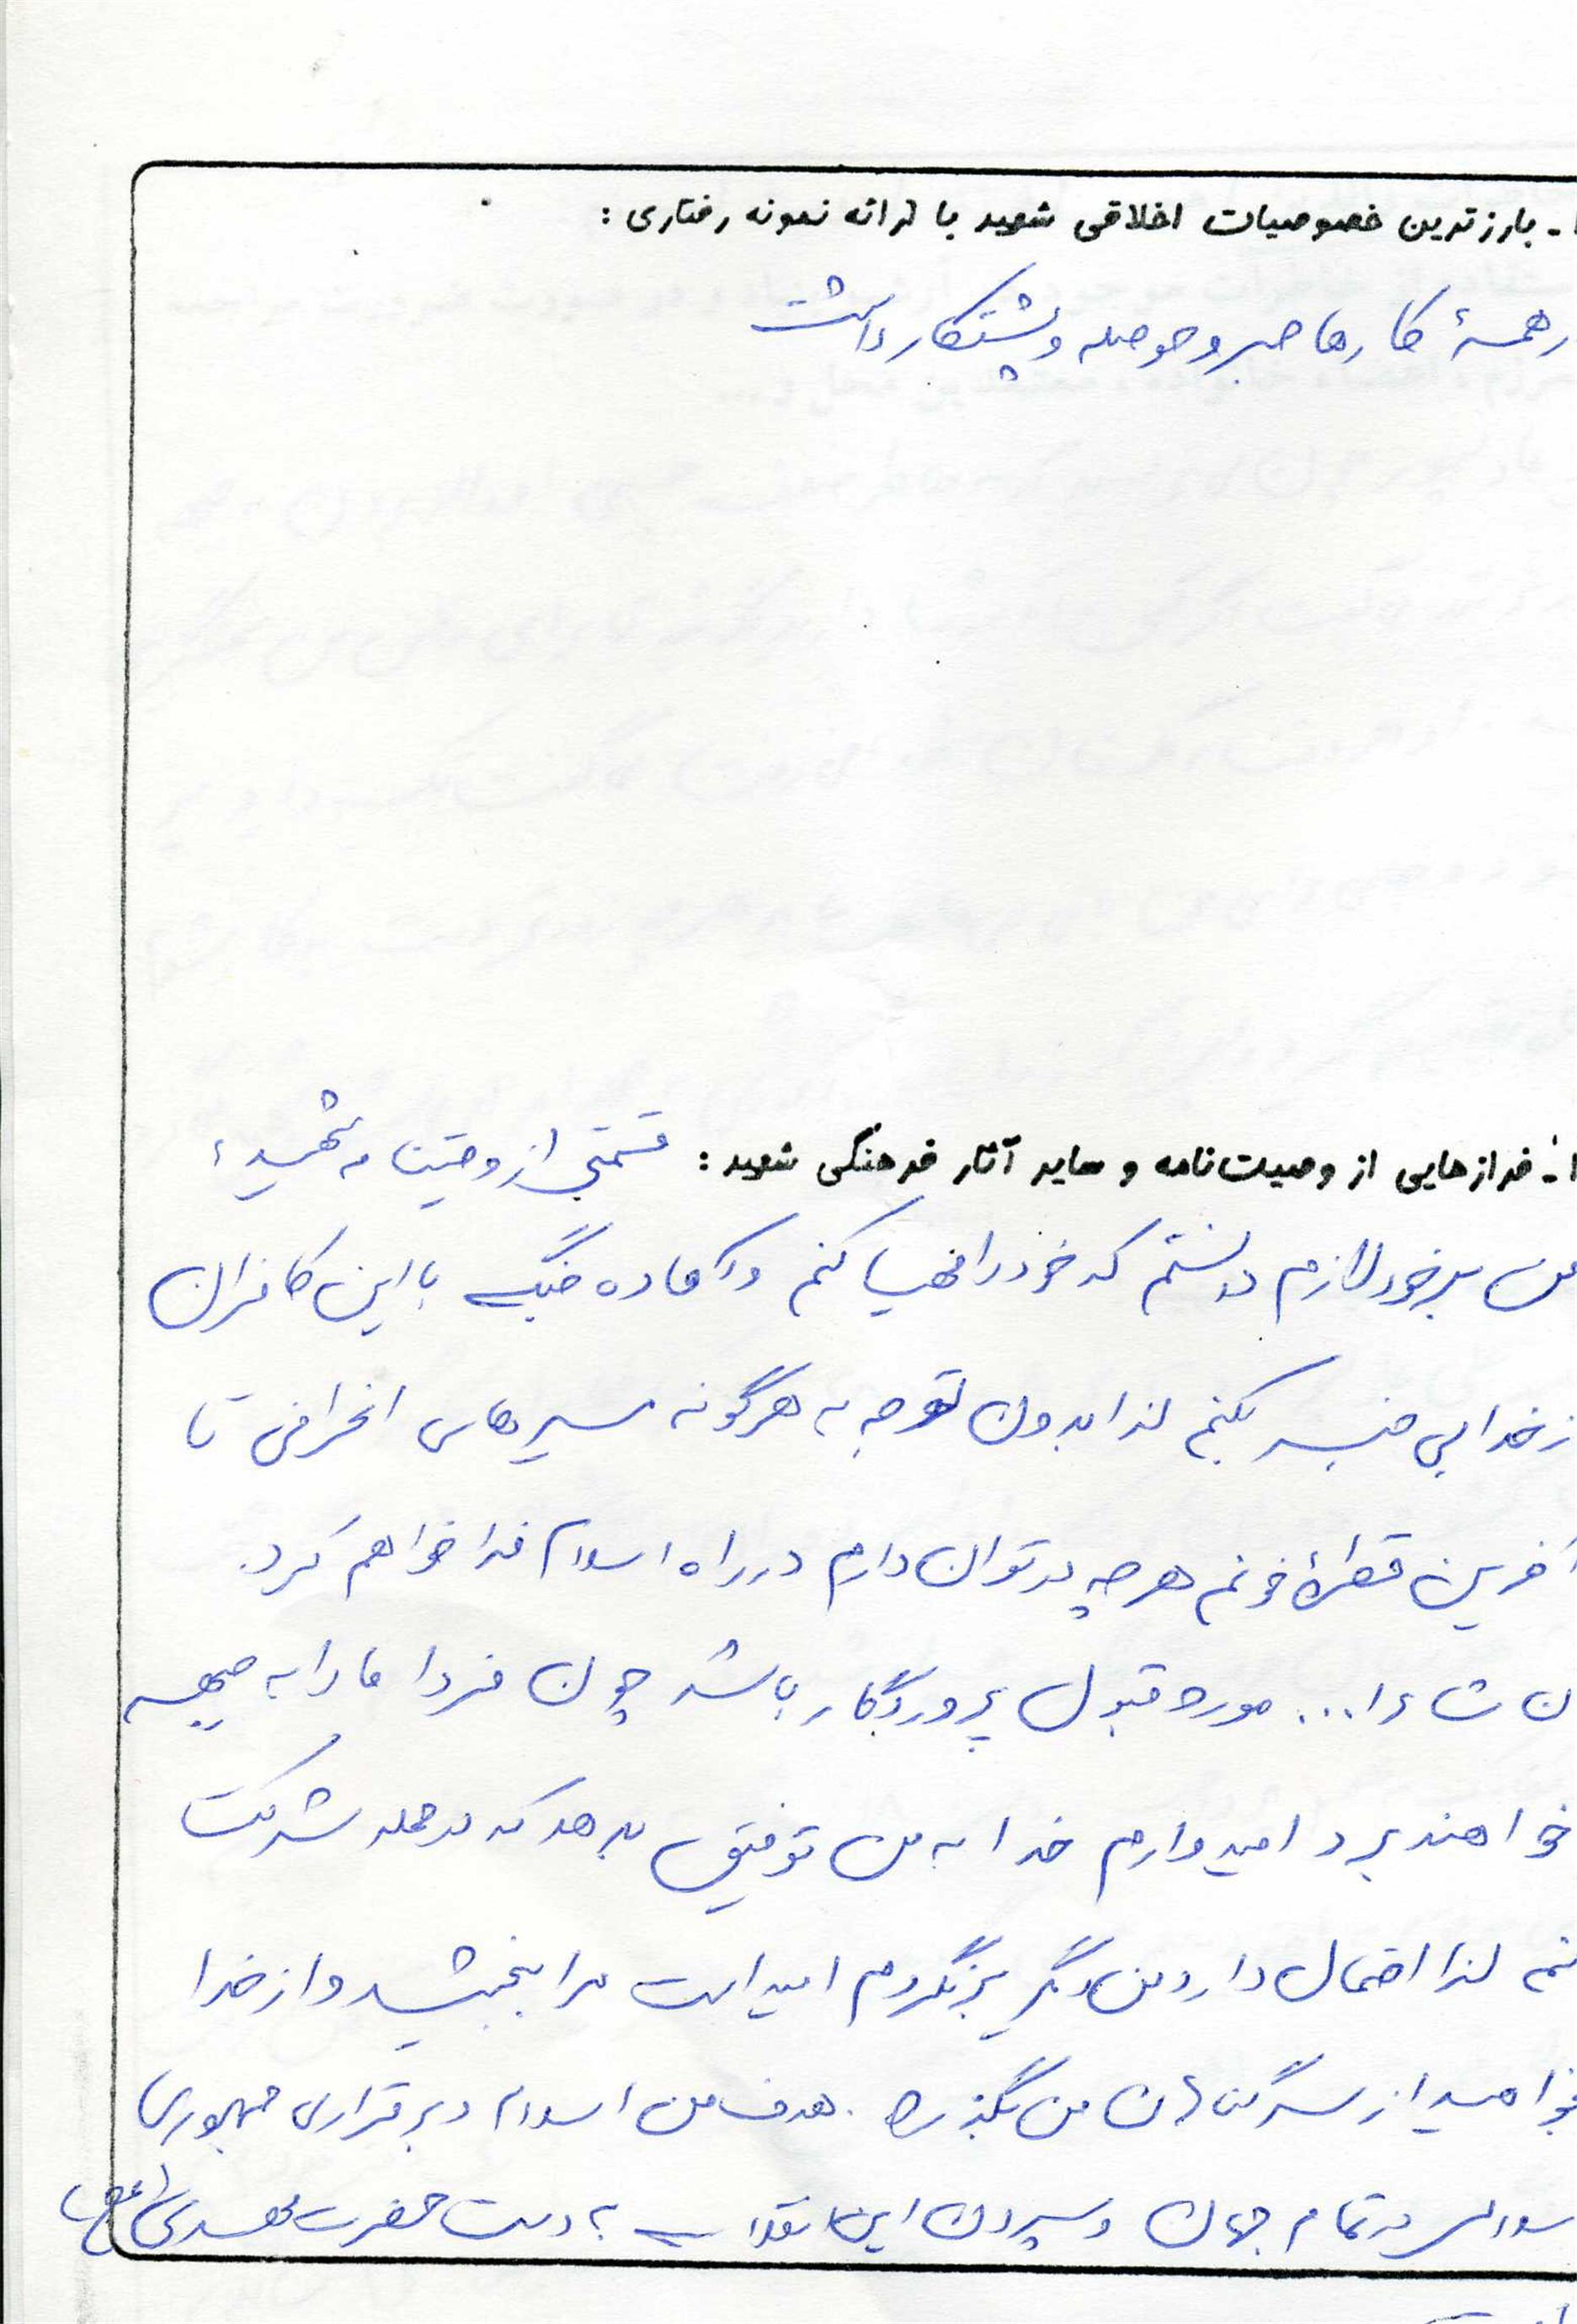 ـ بارزترین خصوصیات اخلاقی شهید با ارائه نمونه رفتاری :
رهمۀ کارها صبر و حوصله و پشتکار داشت
ـ فرازهایی از وصیت‌نامه و سایر آثار فرهنگی شهید : قسمتی از وصیتنامه شهید :
من بر خود لازم دانستم که خود را مهیا کنم و آماده جنگ با این کافران
ز خدا بی خبر بکنم لذا بدون توجه به هرگونه مسیرهای انحرافی تا
آخرین قطرۀ خونم هر چه در توان دارم در راه اسلام فدا خواهم کرد.
ن شاء ا... مورد قبول پروردگار باشد چون فردا ما را به جبهه
خواهند برد امیدوارم خدا به من توفیق بدهد که در حمله شرکت
نم لذا احتمال دارد من دیگر برنگردم امید است مرا ببخشید و از خدا
بخواهید از سر گناهان من بگذرد. هدف من اسلام و برقراری جمهوری
سلامی در تمام جهان و سپردن این انقلاب به دست حضرت مهدی (عج)